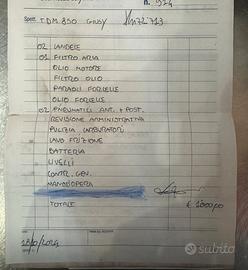 n. 924
Spett. T.D.M. 850 GIUSY
02 CANDELE
01 FILTRO ARIA
OLIO MOTORE
FILTRO OLIO
PARAOLI FORCELLE
OLIO FORCELLE
02 PNEUMATICI ANT. + POST.
REVISIONE AMMINISTRATIVA
PULIZIA CARBURATORI
CAVO FRIZIONE
BATTERIA
LIVELLI
CONTR. GEN.
MANODOPERA
TOTALE € 1000,00
Subito